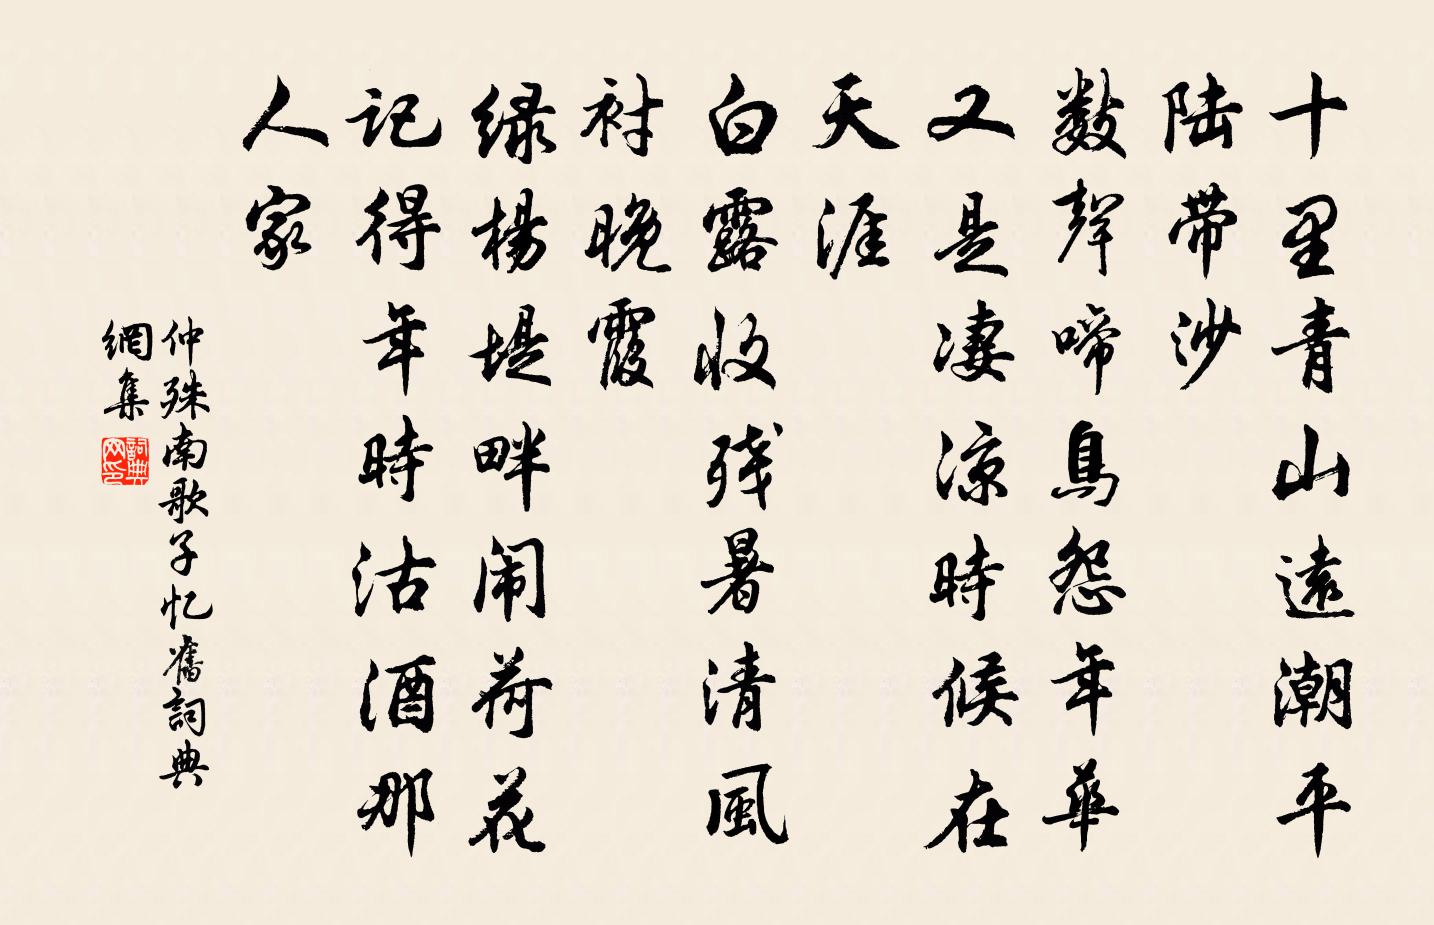 十里青山遠潮平
陆带沙
数聲啼鳥怨年華
又是凄凉時候在
天涯
白露收残暑清風
衬晚霞
绿楊堤畔闹荷花
记得年時沽酒那
人家
仲殊南歌子忆舊詞典
網集
詞典
网